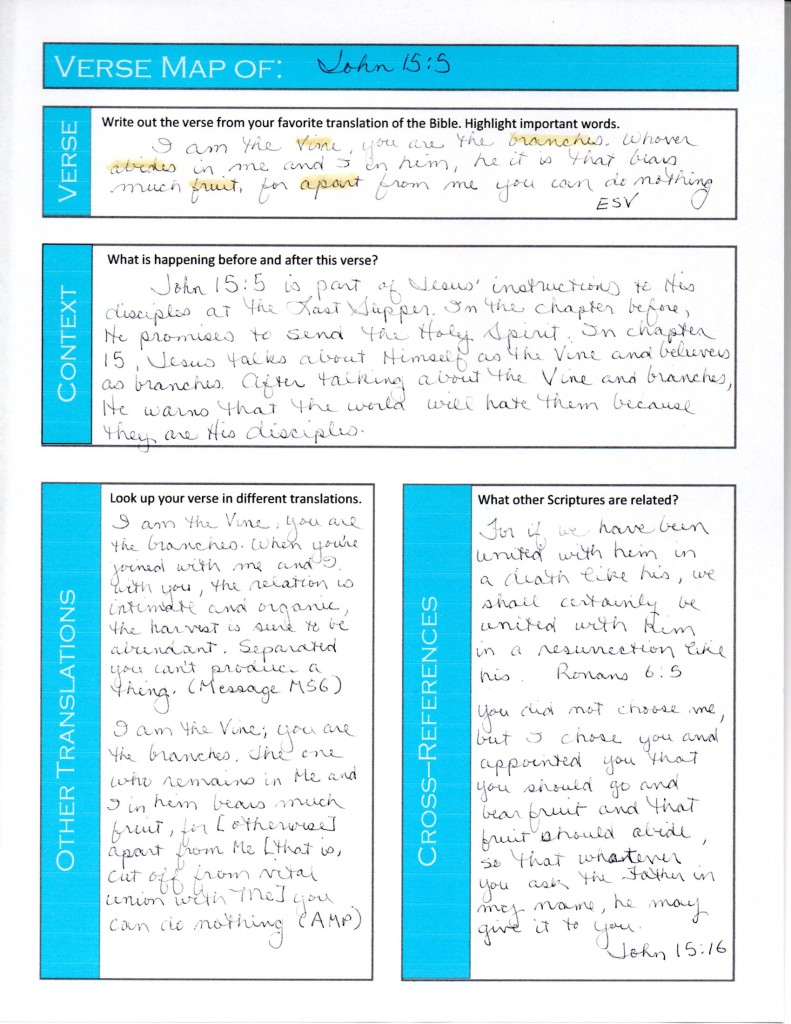 VERSE MAP OF: John 15:5
VERSE
Write out the verse from your favorite translation of the Bible. Highlight important words.
I am the Vine, you are the branches. Whover
abides in me and I in him, he it is that bears
much fruit, for apart from me you can do nothing
ESV
CONTEXT
What is happening before and after this verse?
John 15:5 is part of Jesus' instructions to His
disciples at the Last Supper. In the chapter before,
He promises to send the Holy Spirit. In chapter
15, Jesus talks about Himself as the Vine and believers
as branches. After talking about the Vine and branches,
He warns that the world will hate them because
they are His disciples.
OTHER TRANSLATIONS
Look up your verse in different translations.
I am the Vine, you are
the branches. When you're
joined with me and I
with you, the relation is
intimate and organic,
the harvest is sure to be
abundant. Separated
you can't produce a
thing. (Message MSG)
I am the Vine; you are
the branches. The one
who remains in Me and
I in him bears much
fruit, for [otherwise]
apart from Me [that is,
cut off from vital
union with Me] you
can do nothing (AMP)
CROSS-REFERENCES
What other Scriptures are related?
For if we have been
united with him in
a death like his, we
shall certainly be
united with Him
in a resurrection like
his. Romans 6:5
You did not choose me,
but I chose you and
appointed you that
you should go and
bear fruit and that
fruit should abide,
so that whatever
you ask the Father in
my name, he may
give it to you.
John 15:16